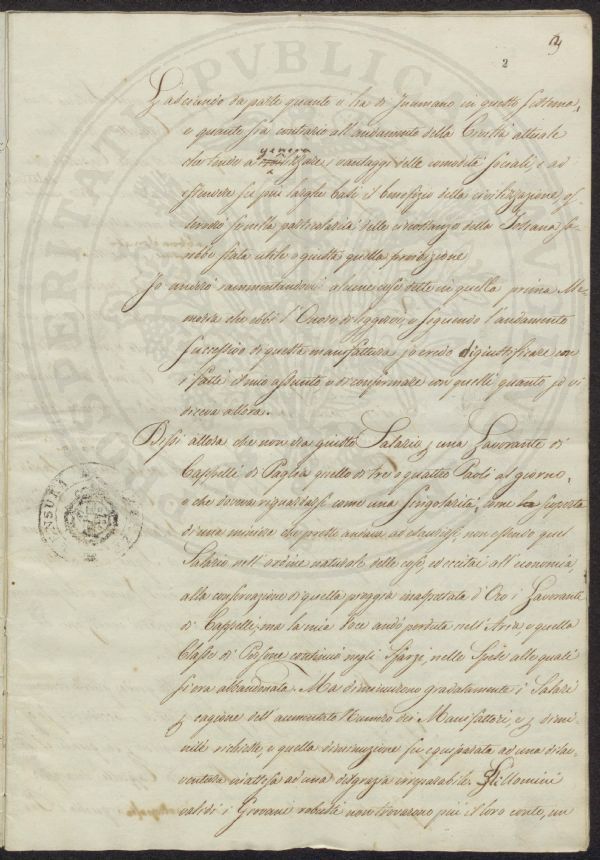 2
Lasciando da parte quanto vi ha di Inumano in questo sistema,
e quanto sia contrario all'andamento della Civiltà attuale
che tende a genera lizzare i vantaggi delle comodità sociali, e ad
estendere su più larghe basi il benefizio della civilizzazione, os-
serverò se nella particolarità delle circostanze della Toscana sa-
rebbe stata utile o giusta quella proibizione
Io andrò rammentandovi alcune cose dette in quella prima Me-
moria che ebbi l'Onore di leggervi, e seguendo l'andamento
successivo di questa manifattura jo credo di giustificare con
i fatti il mio assunto e di confermare con quelli quanto jo vi
diceva allora.
Dissi allora che non era giusto Salario p una Lavorante di
Cappelli di Paglia quello di tre o quattro Paoli al giorno,
e che doveva riguardarsi come una singolarità, come la scoperta
di una miniera che presto andava ad esaurirsi, non essendo quel
Salario nell'ordine naturale delle cose, ed eccitai all'economia,
alla conservazione di quella pioggia inaspettata d'Oro i Lavoranti
di Cappelli, ma la mia Voce andò perduta nell'Aria, e quella
Classe di Persone continuò negli Sfarzi, nelle Spese alle quali
si era abbandonata. Ma diminuirono gradatamente i Salari
p cagione dell'aumentato Numero dei Manifattori, e p dimi-
nuite richieste, e quella diminuzione fu equiparata ad una disav-
ventura inattesa ad una disgrazia irreparabile. Gli Uomini
validi i Giovani robusti non trovarono più il loro conto, un
CENSURA